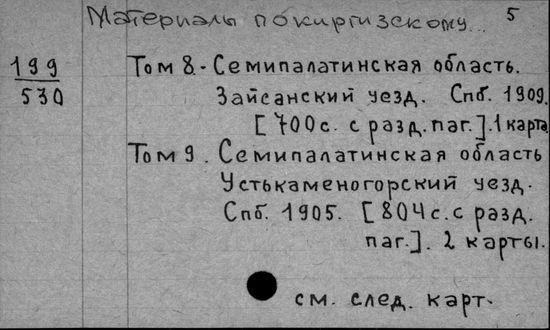 Материалы по киргизскому... 5
199
530
Том 8.- Семипалатинская область.
Зайсанский уезд. Спб. 1909.
[700с. с разд. паг.]. 1 карта
Том 9. Семипалатинская область
Устькаменогорский уезд.
Спб. 1905. [804с. с разд.
паг.]. 2 карты.
см. след. карт.